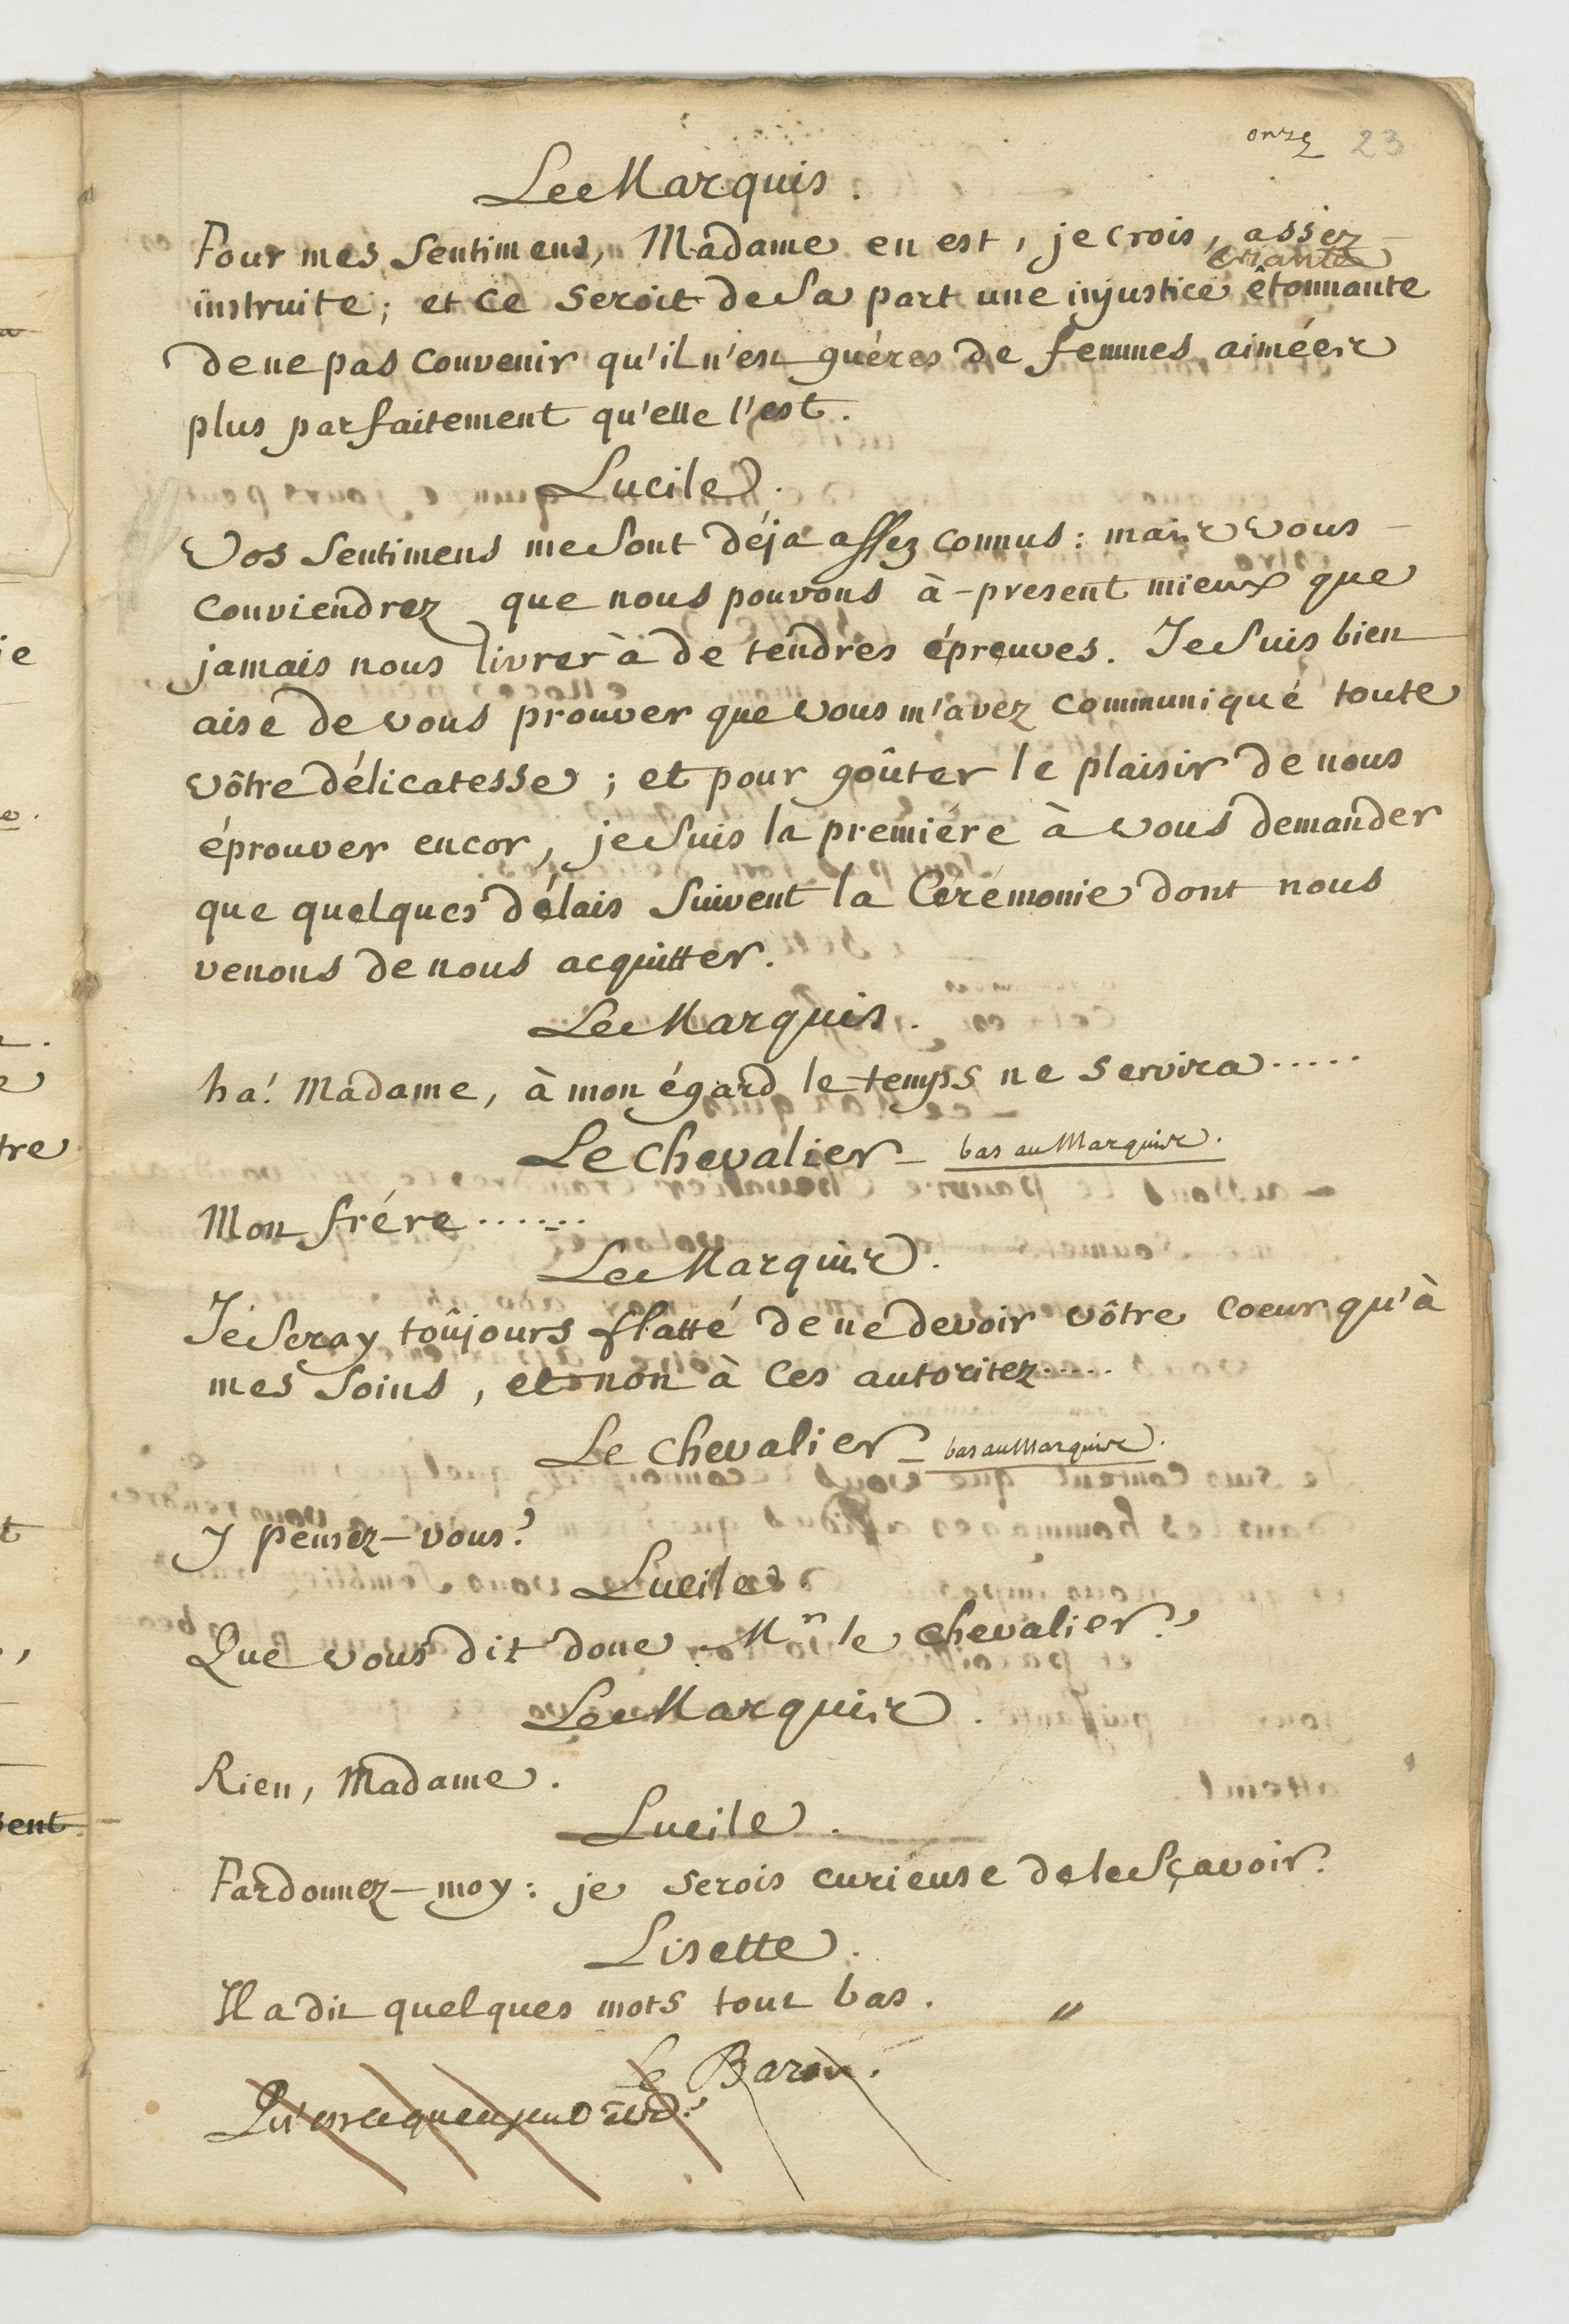 onze 23
Le Marquis.
Pour mes Sentimens, Madame en est, je crois, assez
criante
instruite; et ce seroit de Sa part une injustice êtonnante
de ne pas convenir qu'il n'est guéres de femmes aimées
plus parfaitement qu'elle l'est.
Lucile.
Vos Sentimens me Sont déja assez connus: mais vous
conviendrez que nous pouvons à-present mieux que
jamais nous livrer à de tendres épreuves. Je Suis bien
aise de vous prouver que vous m'avez communiqué toute
vôtre délicatesse; et pour goûter le plaisir de nous
éprouver encor, je Suis la premiére à vous demander
que quelques délais Suivent la Cérémonie dont nous
venons de nous acquitter.
Le Marquis.
ha! Madame, à mon égard le temps ne servira.....
Le Chevalier - bas au Marquis.
Mon frére......
Le Marquis.
Je Seray toûjours flatté de ne devoir vôtre coeur qu'à
mes Soins, et non à ces autoritez.....
Le Chevalier - bas au Marquis.
y pensez-vous?
Lucile.
Que vous dit donc Mr le chevalier?
Le Marquis.
Rien, Madame.
Lucile.
Pardonnez-moy: je serois curieuse de le Sçavoir.
Lisette.
Il a dit quelques mots tout bas. "
Le Baron.
Qu'est ce que